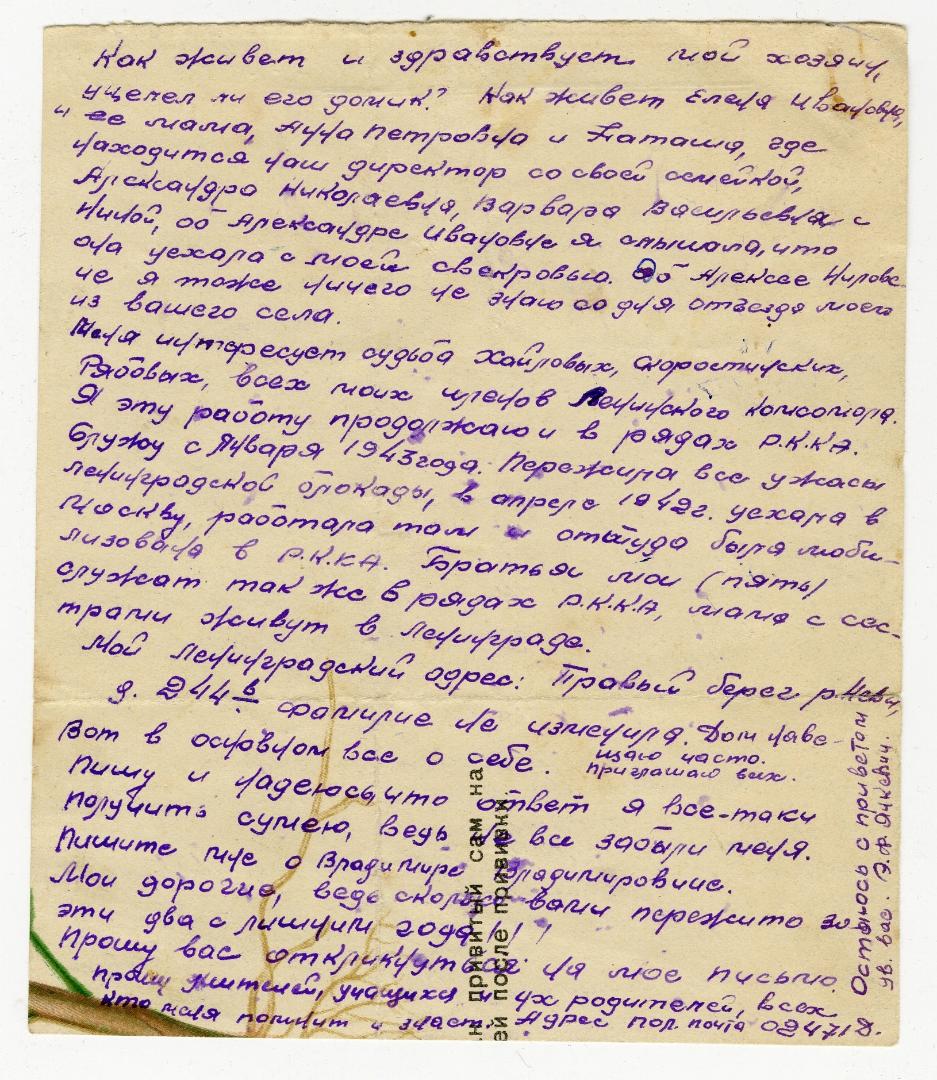 Как живет и здравствует мой хозяин,
уцелел ли его домик? Как живет Елена Ивановна,
и ее мама, Анна Петровна и Наташа, где
находится наш директор со своей семейкой,
Александра Николаевна, Варвара Васильевна с
Ниной, об Александре Ивановне я слышала, что
она уехала с моей свекровью. Об Алексее Нилови-
че я тоже ничего не знаю со дня отъезда моего
из вашего села.
Меня интересует судьба Хайловых, Скоростинских,
Рябовых, всех моих членов Ленинского комсомола.
Я эту работу продолжаю и в рядах Р.К.К.А.
Служу с Января 1943 года. Пережила все ужасы
ленинградской блокады, в апреле 1942г. уехала в
Москву, работала там и оттуда была моби-
лизована в Р.К.К.А. Братья мои (пять)
служат так же в рядах Р.К.К.А, мама с сес-
трами живут в Ленинграде.
Мой Ленинградский адрес: Правый берег р. Невы,
д. 244 в фамилие не изменила. Дом наве-
щаю часто.
приглашаю всех.
Вот в основном все о себе.
Пишу и надеюсь, что ответ я все-таки
получить сумею, ведь не все забыли меня.
Пишите мне о Владимире Владимировиче.
Мои дорогие, ведь сколько вами пережито за
эти два с лишним года!!!
Прошу вас откликнуться на мое письмо.
прошу учителей, учащихся и их родителей, всех
кто меня помнит и знает. Адрес пол. почта 02471 Д.
Остаюсь с приветом
ув. вас. Э.Ф. Янкевич.
н привитый сам на
ей после прививки